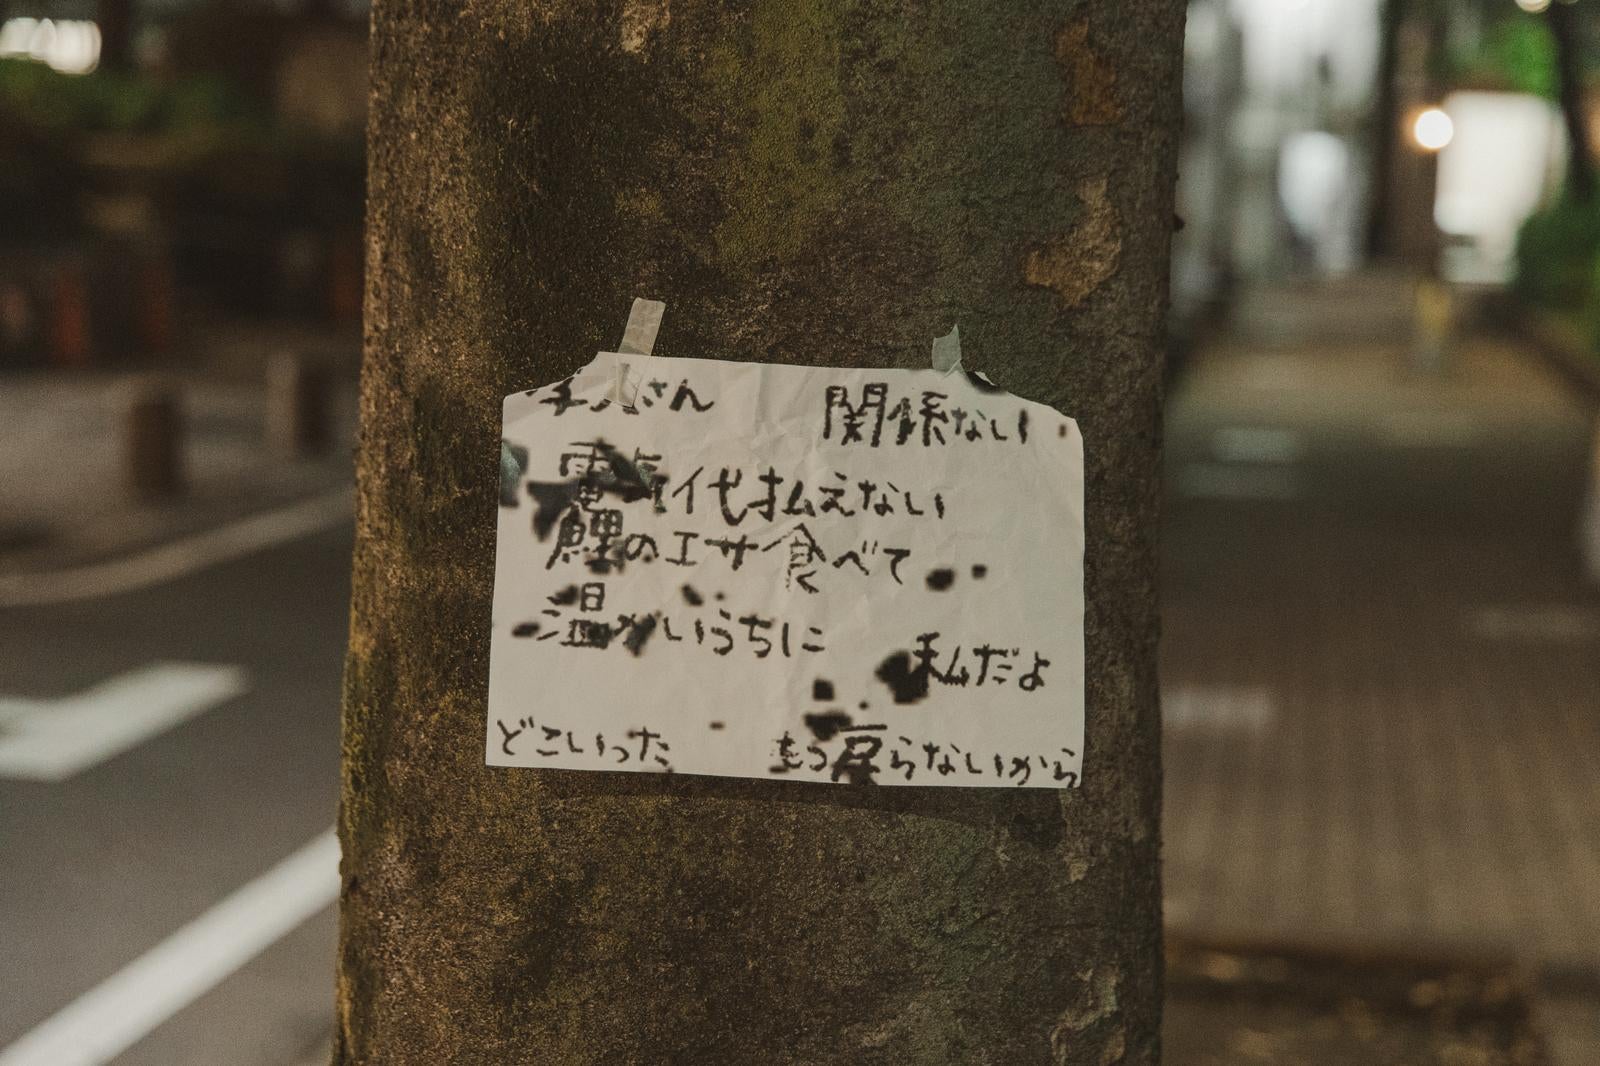 さん
関係ない
電気代払えない
鯉のエサ食べて
温かいうちに
私だよ
どこいった
もう戻らないから